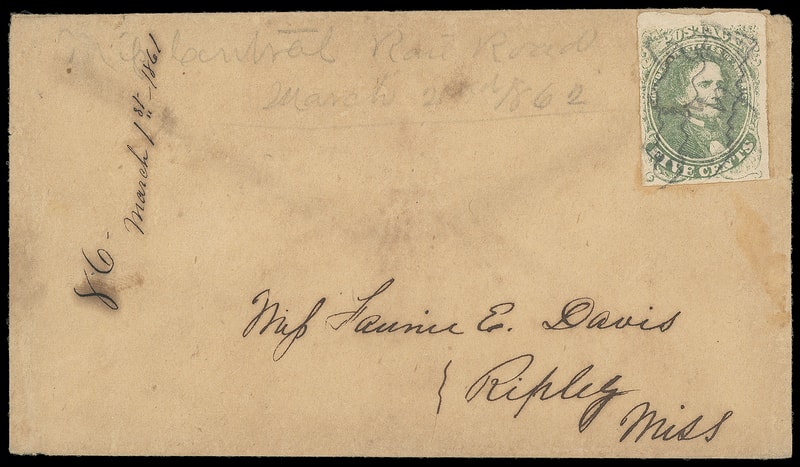 Miss Central Rail Road
March 2nd 1862
86-
March 1st 1861
FIVE CENTS
Miss Fannie E. Davis
Ripley
Miss